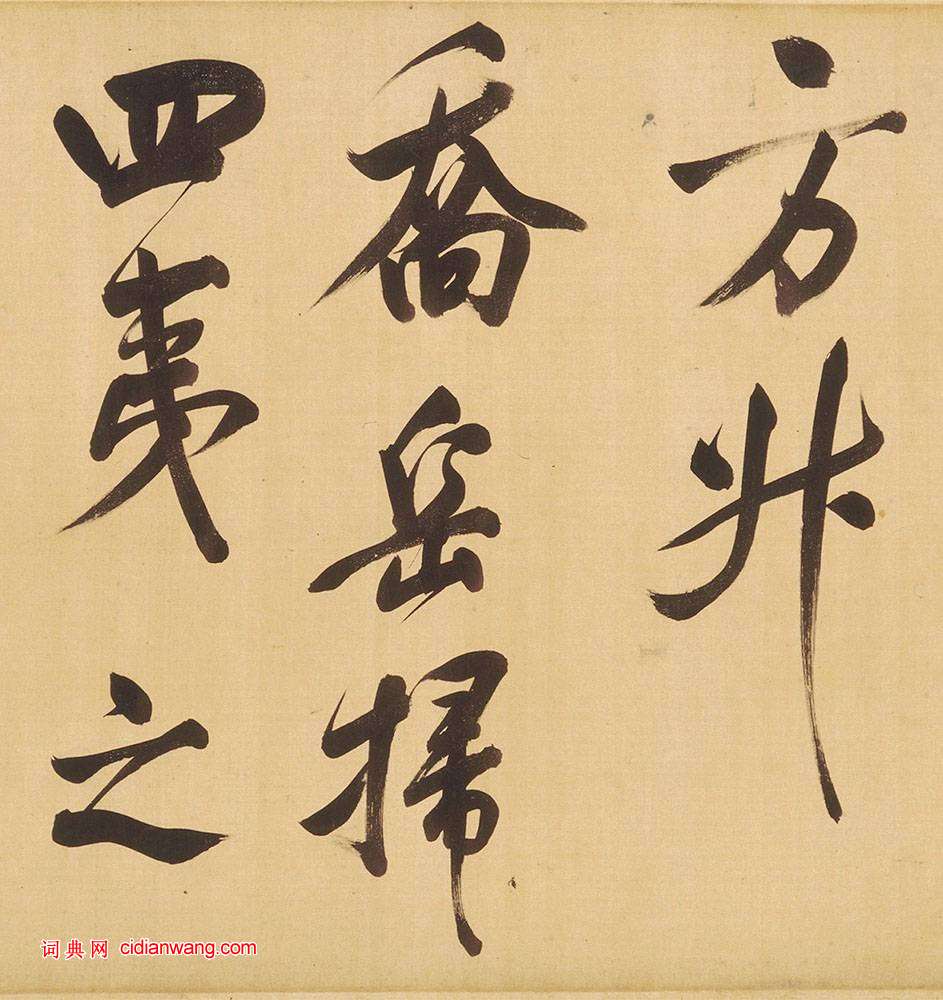 方升
喬岳掃
四夷之
词典网 cidianwang.com